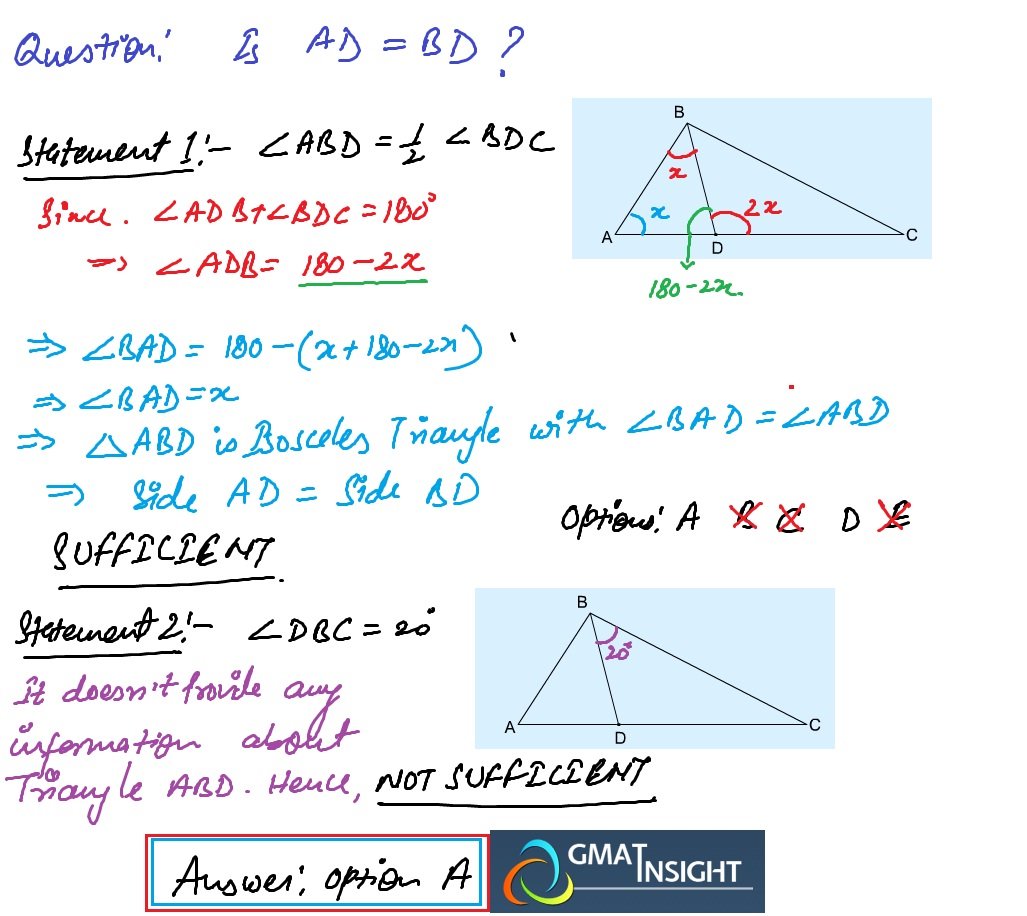 Question: Is AD = BD ?
Statement 1:- ∠ABD = 1/2 ∠BDC
Since. ∠ADB+∠BDC = 180°
=> ∠ADB= 180-2x
B
x
x
2x
A
D
C
180-2x.
=> ∠BAD = 180-(x+180-2x)
=> ∠BAD = x
=> △ABD is Isosceles Triangle with ∠BAD = ∠ABD
=> Side AD = Side BD
Options: A B C D E
SUFFICIENT.
Statement 2:- ∠DBC = 20°
B
20°
A
D
C
It doesn't provide any
information about
Triangle ABD. Hence, NOT SUFFICIENT
Answer: option A
GMAT INSIGHT